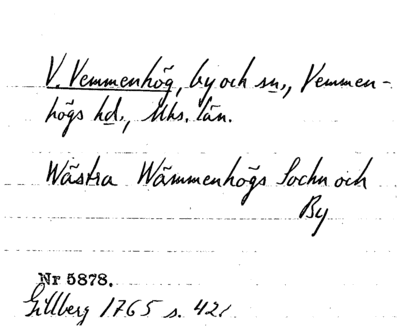 V. Vemmenhög, by och sn., Vemmen-
högs hd., Mhs. län.
Wästra Wämmenhögs Sochn och
By
Nr 5878.
Gillberg 1765 s. 42.